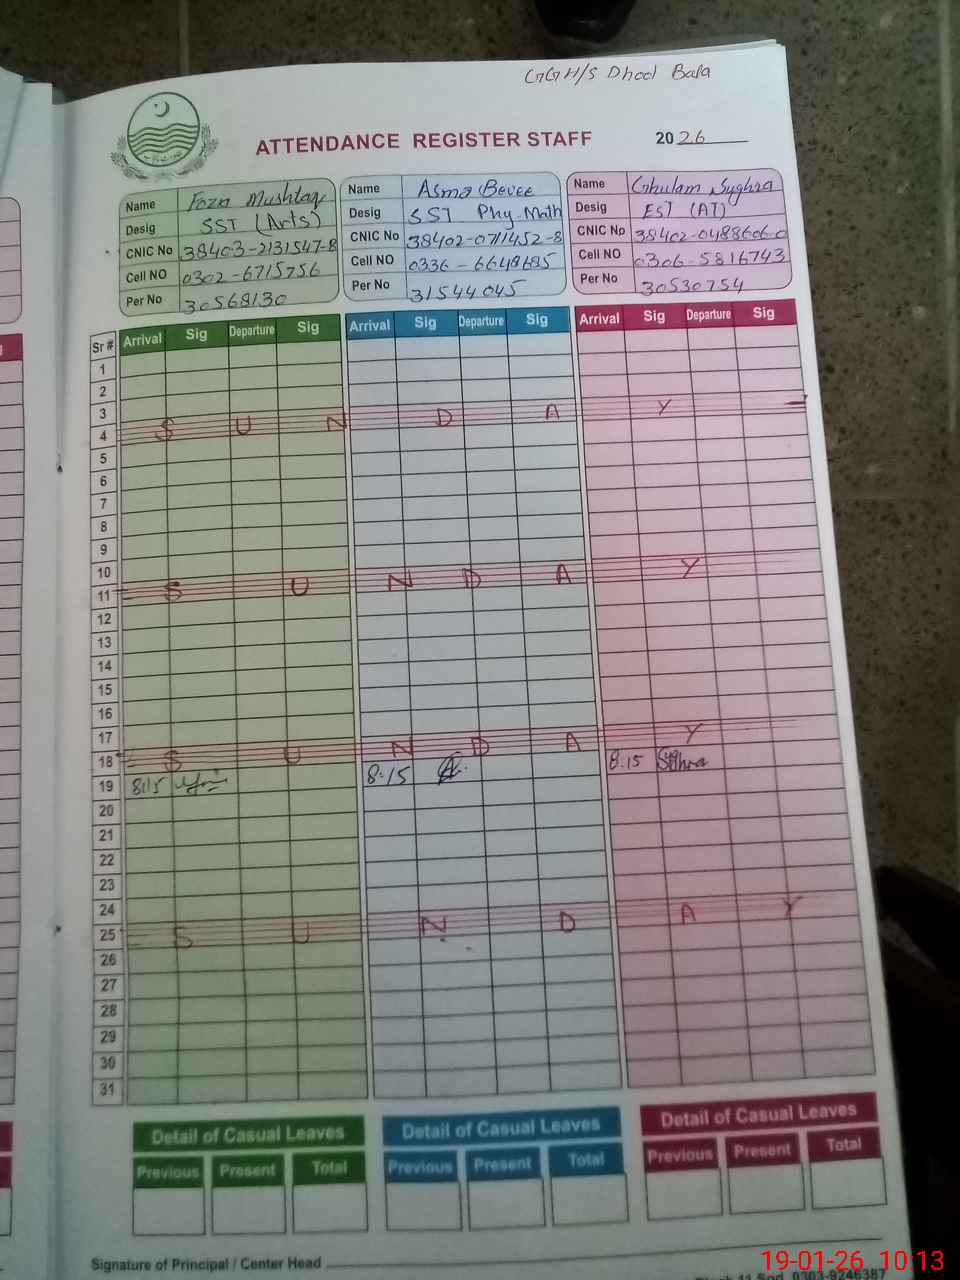 GGH/S Dhool Bala
ATTENDANCE REGISTER STAFF 2026
Name Fozia Mushtaq
Desig SST (Arts)
CNIC No 38403-2131547-8
Cell NO 0302-6715756
Per No 30568130
Name Asma Bevee
Desig SST Phy-Math
CNIC No 38402-0711452-8
Cell NO 0336-6648685
Per No 31544045
Name Ghulam Sughra
Desig EST (AT)
CNIC No 38402-0488606-0
Cell NO 0306-5816743
Per No 30530754
Sr # Arrival Sig Departure Sig Arrival Sig Departure Sig Arrival Sig Departure Sig
1
2
3
4 S U N D A Y
5
6
7
8
9
10
11 S U N D A Y
12
13
14
15
16
17
18 S U N D A Y
19 8:15 8:15 8:15 Sughra
20
21
22
23
24
25 S U N D A Y
26
27
28
29
30
31
Detail of Casual Leaves Detail of Casual Leaves Detail of Casual Leaves
Previous Present Total Previous Present Total Previous Present Total
Signature of Principal / Center Head
0303-9246387
19-01-26 10:13